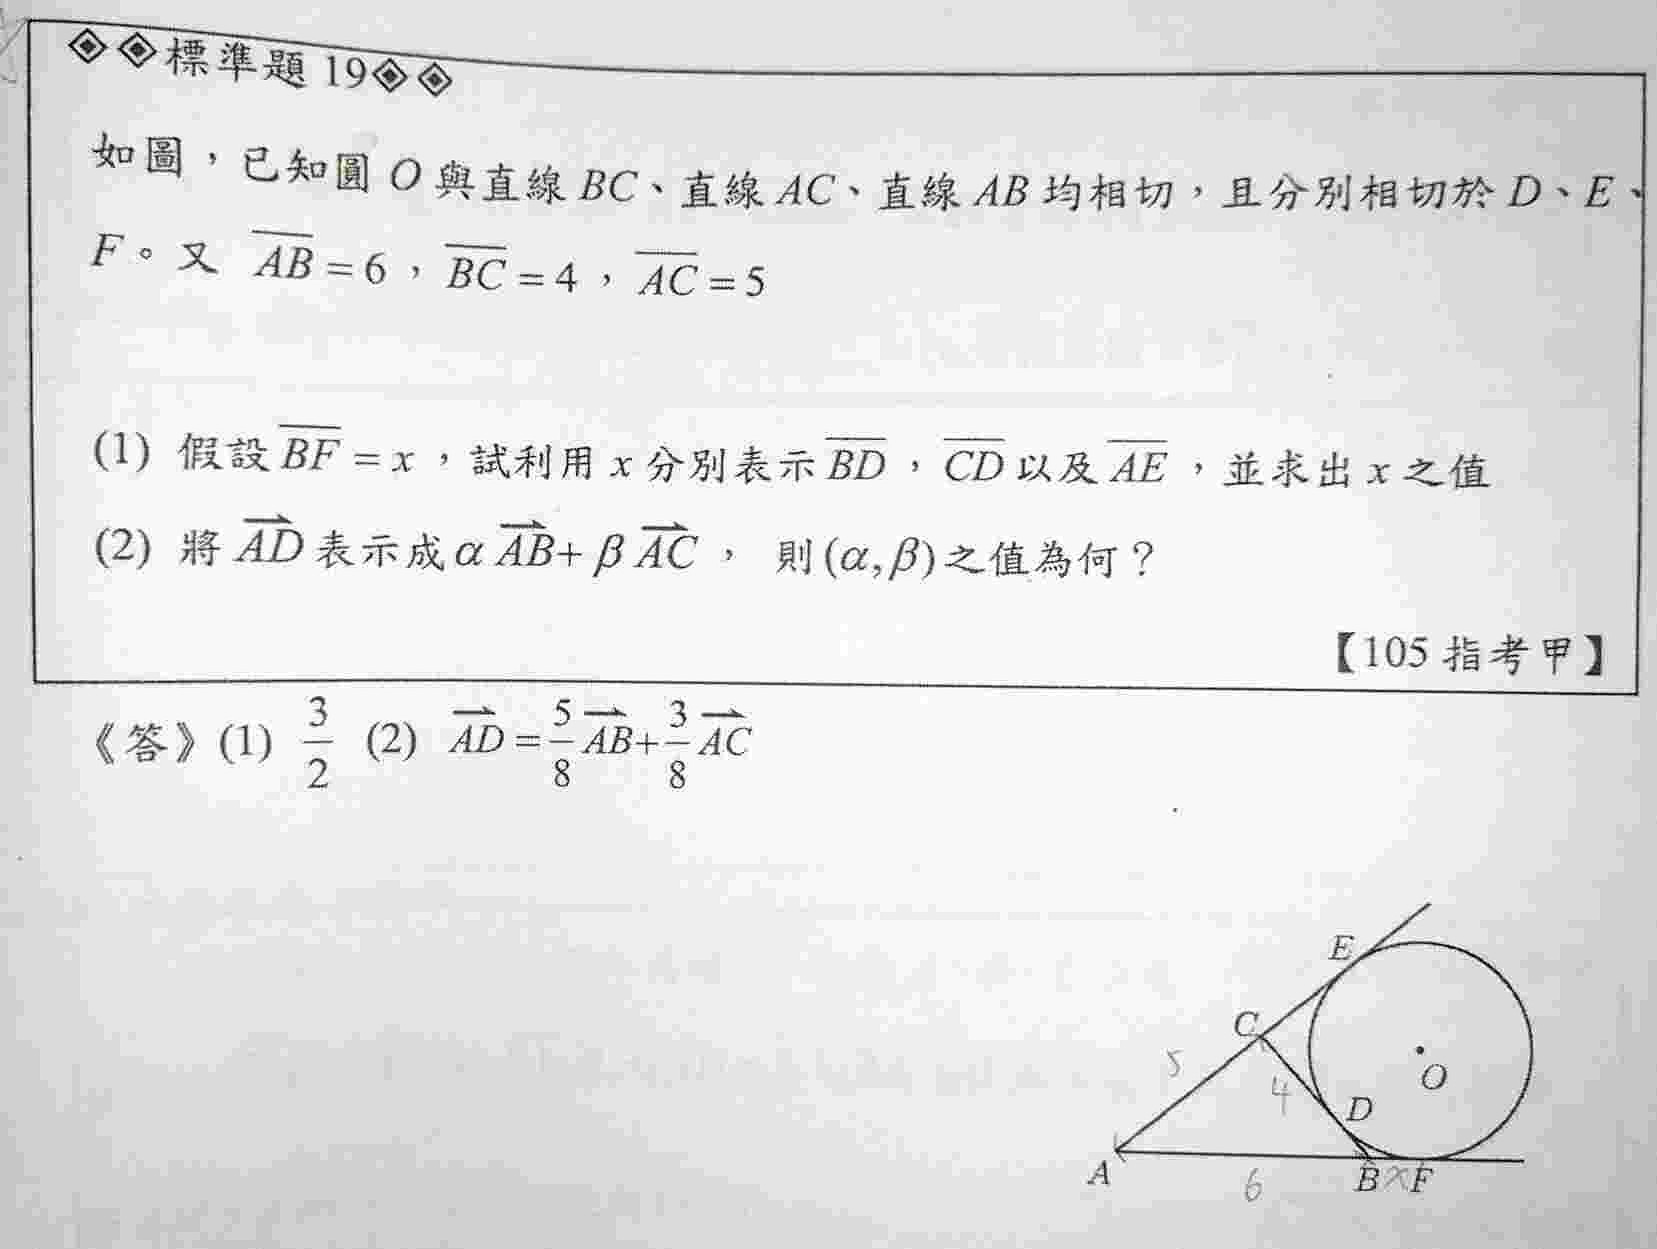 ◈◈標準題 19◈◈
如圖，已知圓 O 與直線 BC、直線 AC、直線 AB 均相切，且分別相切於 D、E、
F。又 \overline{AB} = 6，\overline{BC} = 4，\overline{AC} = 5
(1) 假設 \overline{BF} = x，試利用 x 分別表示 \overline{BD}，\overline{CD} 以及 \overline{AE}，並求出 x 之值
(2) 將 \overrightarrow{AD} 表示成 α \overrightarrow{AB} + β \overrightarrow{AC}， 則 (α, β) 之值為何？
【105 指考甲】
《答》(1) \frac{3}{2} (2) \overrightarrow{AD} = \frac{5}{8} \overrightarrow{AB} + \frac{3}{8} \overrightarrow{AC}
E
C
5
O
4
D
A
6
B x F